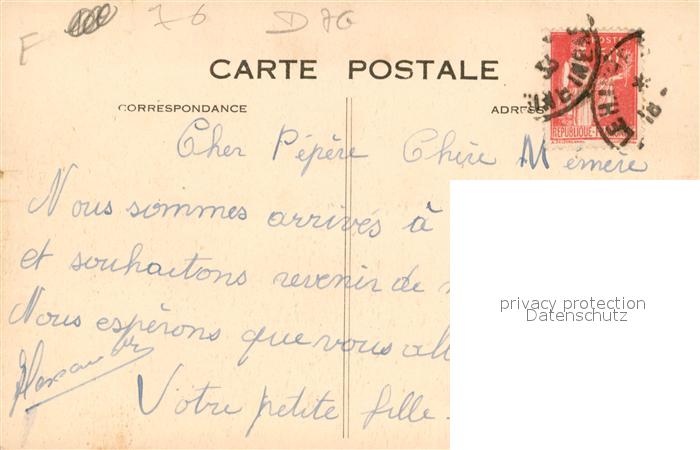 F 76 D 76
CARTE POSTALE
CORRESPONDANCE ADRESS
POSTE
REPUBLIQUE-F
Cher Pépère Chère Mémère
Nous sommes arrivés à
et souhaitons revenir de
Nous espérons que vous all
Votre petite fille.
privacy protection
Datenschutz